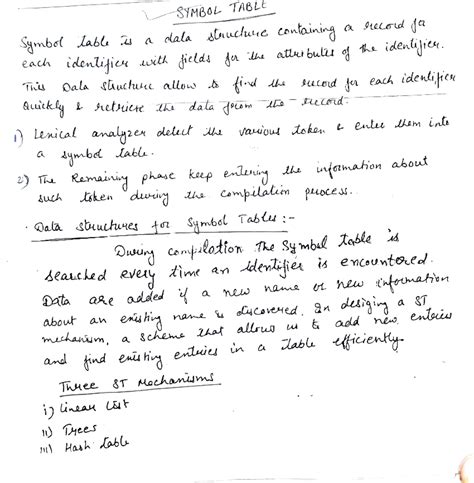 SYMBOL TABLE
Symbol table is a data structure containing a record for
each identifier with fields for the attributes of the identifier.
This Data structure allow to find the record for each identifier
Quickly & retrieve the data from the record.
1) Lexical analyzer detect the various token & enter them into
a symbol table.
2) The Remaining phase keep entering the information about
such token during the compilation process.
· Data structures for Symbol Tables :-
During compilation the Symbol table is
searched every time an identifier is encountered.
Data are added if a new name or new information
about an existing name is discovered. In desiging a ST
mechanism, a scheme that allows us to add new entries
and find existing entries in a table efficiently.
Three ST Mechanisms
i) Linear List
ii) Trees
iii) Hash table